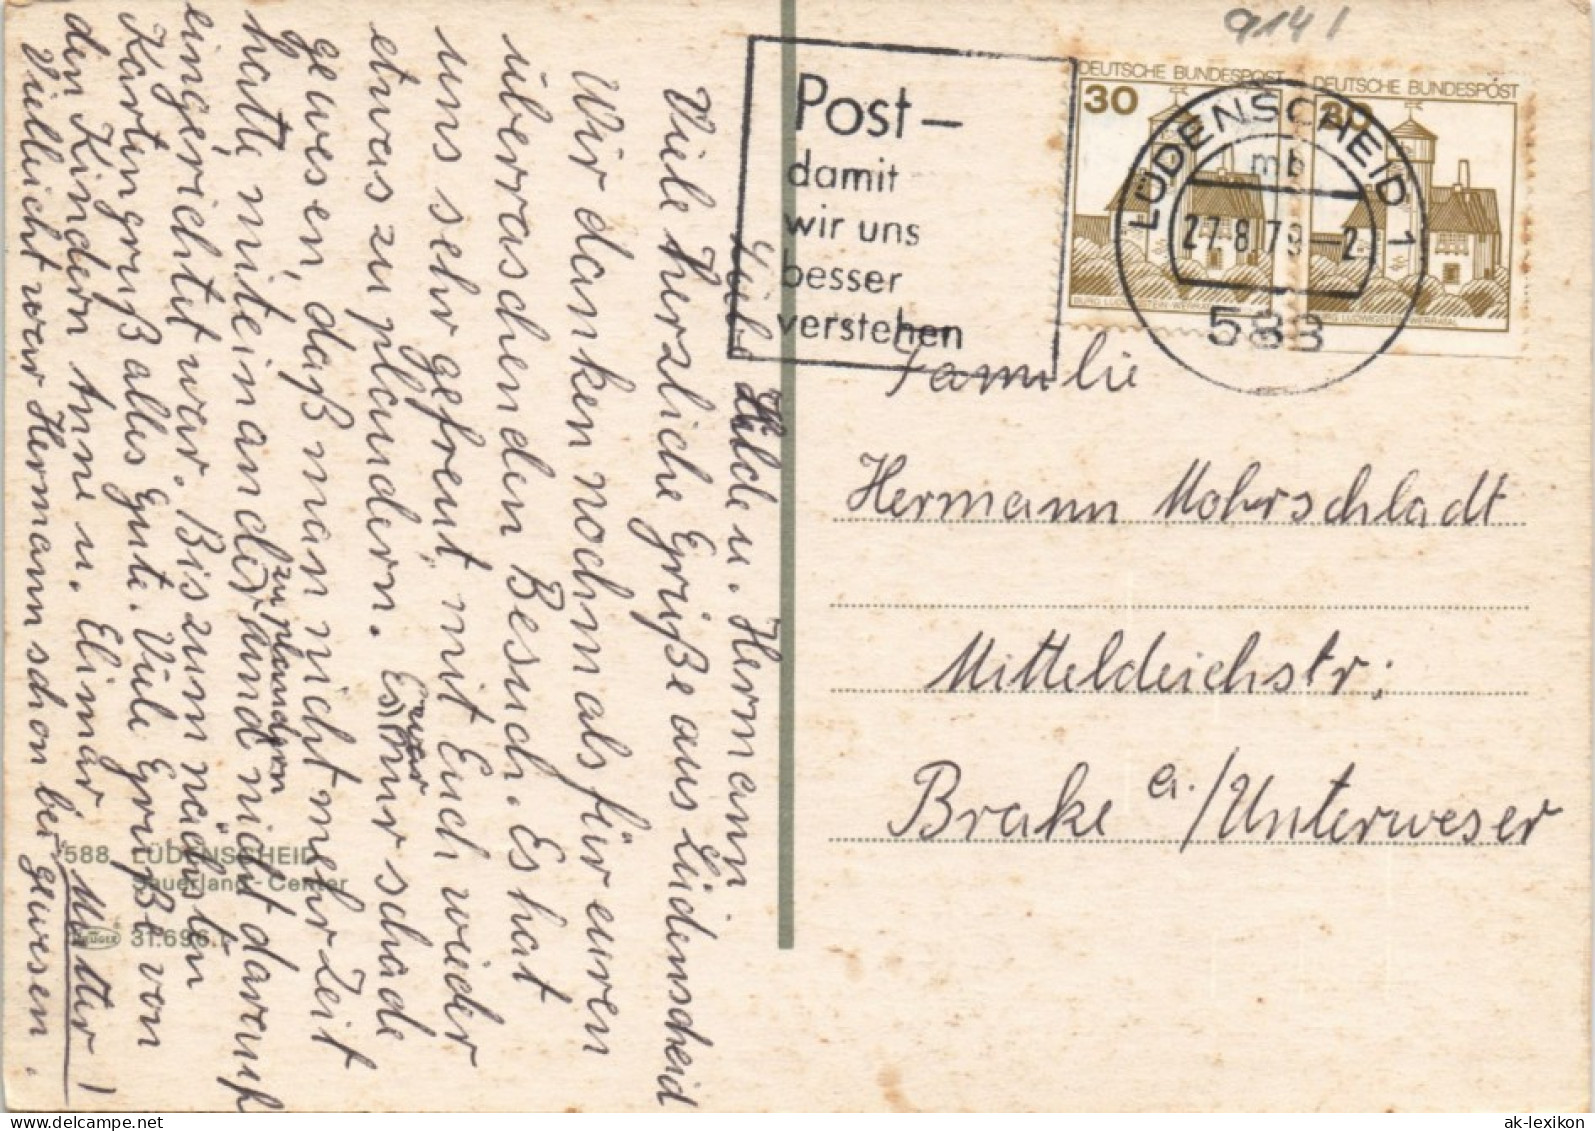 9141
Post –
damit
wir uns
besser
verstehen
DEUTSCHE BUNDESPOST
30
DEUTSCHE BUNDESPOST
30
LÜDENSCHEID 1
mb
27.8.79-2
588
Familie
Hermann Mohrschladt
Mitteldeichstr:
Brake a./Unterweser
Liebe Hilde u. Hermann
Viele herzliche Grüße aus Lüdenscheid
Wir danken nochmals für euren
überraschenden Besuch. Es hat
uns sehr gefreut, mit Euch wieder
etwas zu plaudern. Es war nur schade
gewesen, daß man nicht mehr Zeit
hatte, miteinander zu plaudern und nicht darauf
eingerichtet war. Bis zum nächsten
Kartengruß alles Gute. Viele Grüße von
den Kindern Anne u. Elimar Mutter!
Vielleicht war Hermann schon bei gewesen.
588 LÜDENSCHEID
Sauerland-Center
KRÜGER
31.696.
ak-lexikon.com